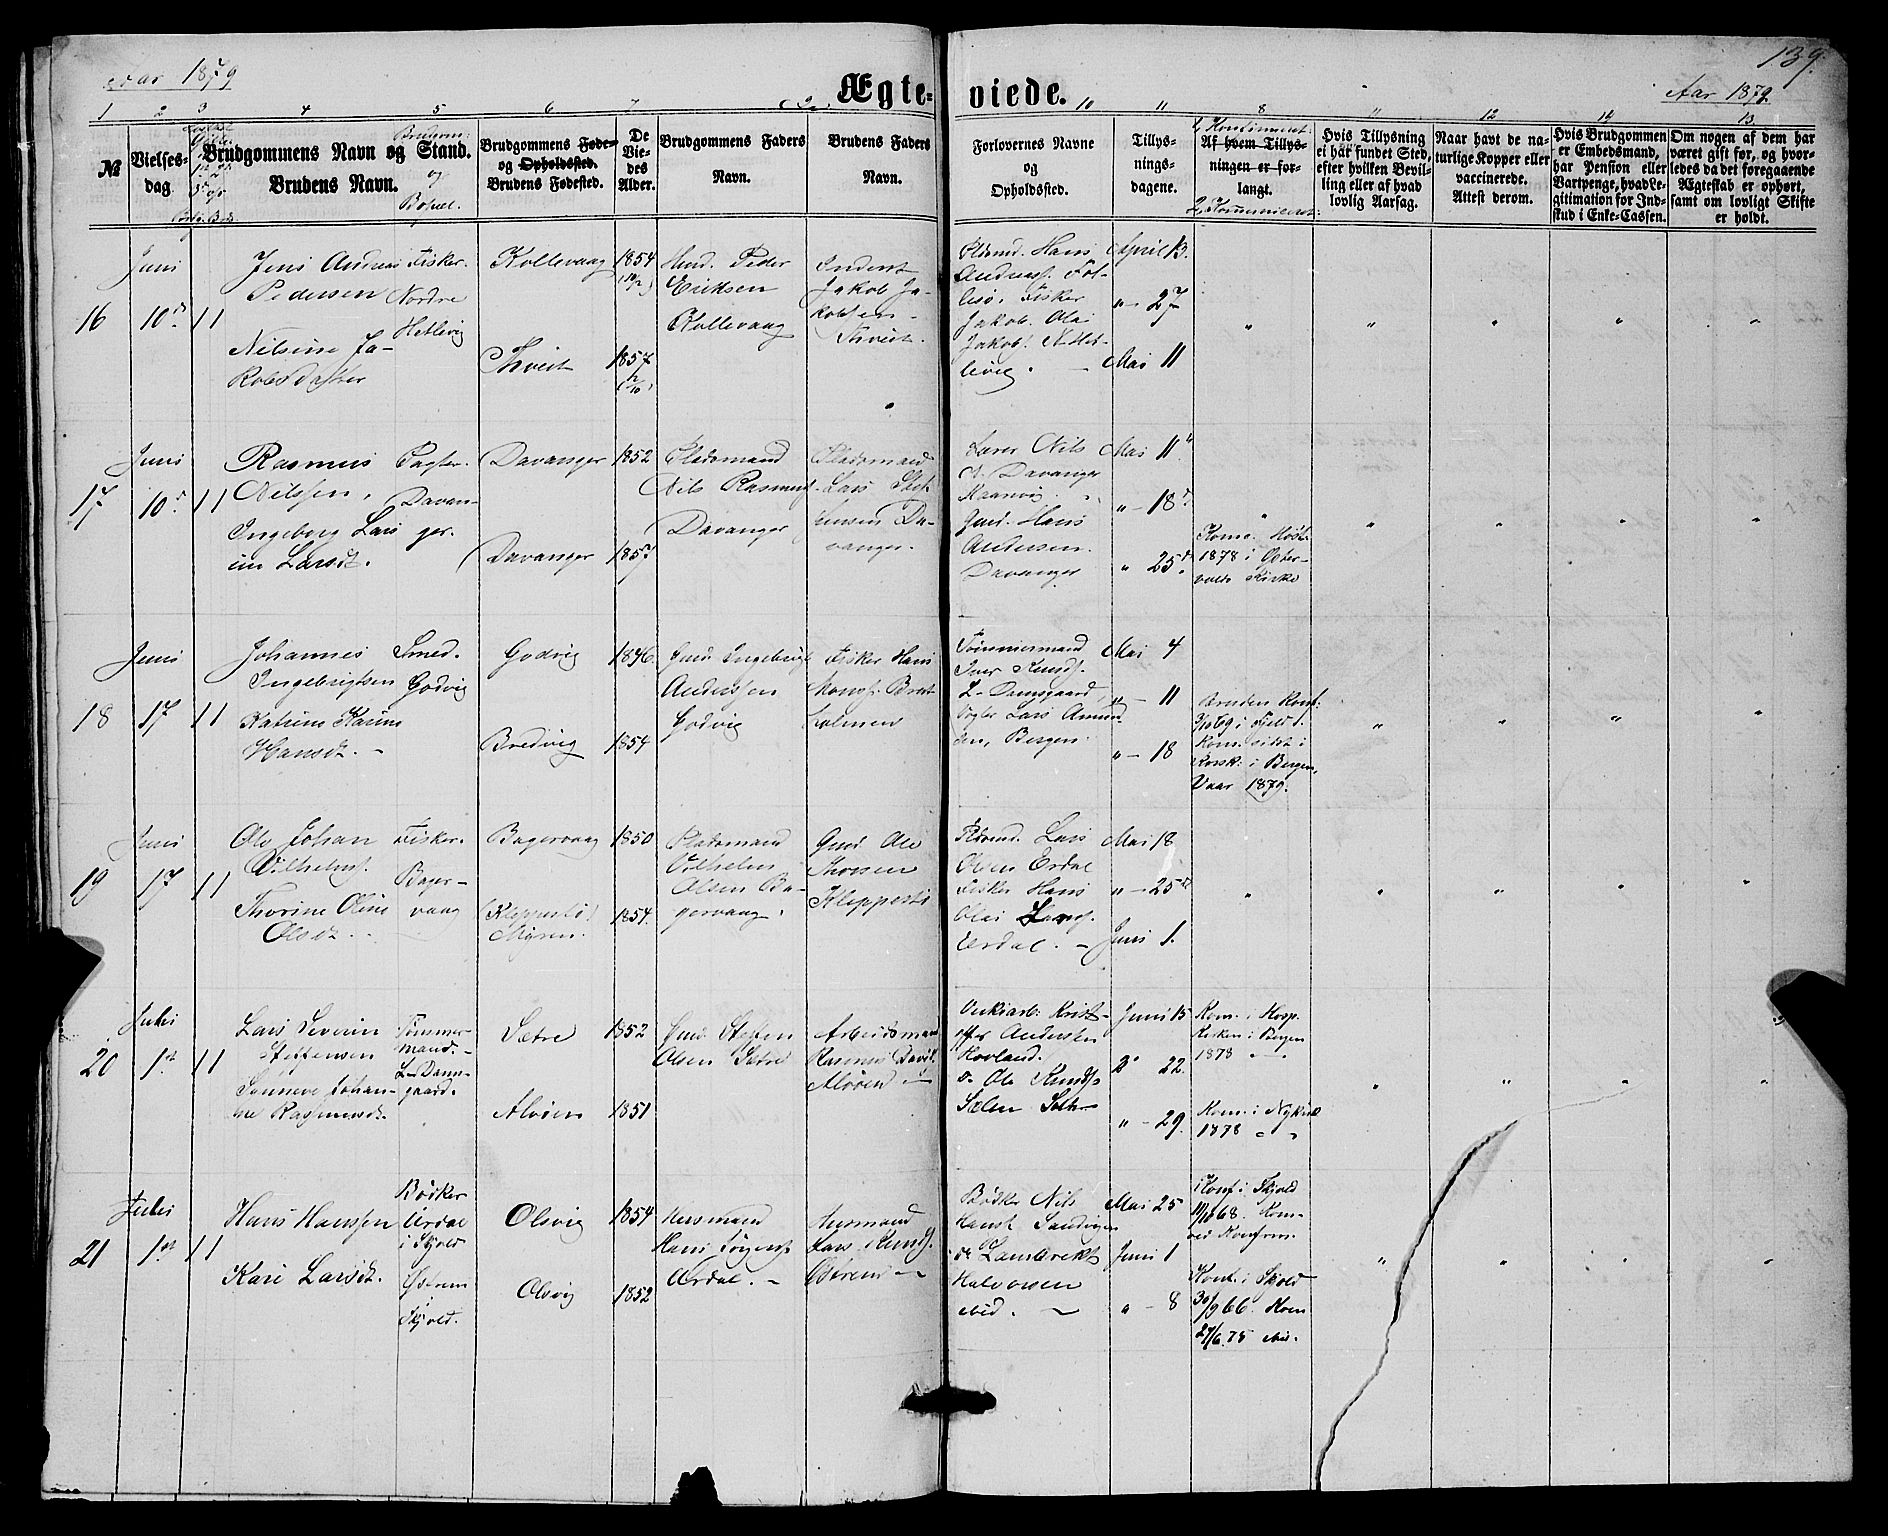 Aar 1879
Ægteviede.
139.
Aar 1879
1 2 3 4 5 6 7 9 10 11 8 11 12 12 13
№
Vielses-
dag
Brudgommens Navn og Stand.
Brudens Navn.
Brudgom:
og
Bopæl.
Brudgommens Føde-
og Opholdssted.
Brudens Fødested.
De
Vie-
des
Alder.
Brudgommens Faders
Navn.
Brudens Faders
Navn.
Forlovernes Navne
og
Opholdssted.
Tillys-
nings-
dagene.
1, Konfirmeret:
Af hvem Tillys-
ningen er for-
langt.
2, Kommuniceret:
Hvis Tillysning
ei har fundet Sted,
efter hvilken Bevil-
ling eller af hvad
lovlig Aarsag.
Naar havt de na-
turlige Kopper eller
vaccinerede.
Attest derom.
Hvis Brudgommen
er Embedsmand,
har Pension eller
Vartpenge, hvad Le-
gitimation for Ind-
skud i Enke-Cassen.
Om nogen af dem har
været gift før, og hvor-
ledes da det foregaaende
Ægteskab er ophørt,
samt om lovligt Skifte
er holdt.
16
Juni
10d
11
Jens Andreas
Pedersen
Nilsine Ja-
kobsdatter
Fisker.
Nordre
Hetlevig
Kollevaag
Thveit
1854
1857
Peder
Eriksen
Kollevaag
Inderst
Jakob Ja-
kobsen
Thveit.
Pldsmd. Hans
Andreas. Fol-
lesø. Fisker
Jakob Olai
Jakobs. N. Het-
levig.
April 13.
" - 27
Mai 11
" " " " "
17
Juni
10d
11
Rasmus
Nilssen,
Ingeborg Lars
ine Larsdt.
Pagter.
Davan-
ger.
Davanger
Davanger
1852
1857
Pladsmand
Nils Rasmus
Davanger
Pladsmand
Lars
Da-
vanger.
Lærer Nils
A. Davanger
Gmd. Hans
Andersen
Davanger
Mai 11"
" - 18d
" 25d
"
Kom. Høst.
1878 i Øster-
volds Kirke
" " " "
18
Juni
17
11
Johannes
Ingebrigtsen
Katrine Karine
Hansdt.
Smed.
Godvig
Godvig
Bredvig
1846.
1854
Gmd. Ingebrigt
Anderssen
Godvig
Fisker Hans
Monss. Bret-
holmen
Tømmermand
Iver Knuds.
L- Damsgaard,
Vogter Lars Amund-
sen, Bergen.
Mai 4
" - 11
" - 18
Bruden Konf:
3/10 69 i Field.
Kom. sidst i
Korsk: i Bergen,
Vaar 1879.
" " " "
19
Juni
17
11
Ole Johan
Vilhelms.
Thorine Oline
Olsdt.
Fisker.
Bager-
vaag
Bagervaag
(Kleppestø)
Myren.
1850
1854.
Pladsmand
Vilhelm
Olsen Ba-
gervaag.
Gmd Ole
Thorsen
Kleppestø
Pldsmd. Lars
Olsen Erdal
Fisker Hans
Olai Lars.
Erdal.
Mai 18
" - 25d
Juni 1.
" " " " "
20
Juli
1st
11
Lars Severin
Steffensen
Sønneve Johan-
ne Rasmusdt.
Tømmer-
mand.
L-Dams-
gaard.
Sætre
Alvøen
1852
1851
Gmd Steffen
Olsen Sætre
Arbeidsmand
Rasmus Davids.
Alvøen
Kristof-
fer Andersen
Hovland.
Do Ole Knuds.
Sælen
Juni 15
" 22.
" - 29.
Kom. i Hosp.
Kirken i Bergen
1878
Kom. i Nykirk
1878 " "
" " " "
21
Juli
1st
11
Hans Hanssen
Kari Larsdt.
Bødker
Ærdal
i Skjold
Østrem
i
Skjold.
Olsvig
Olsvig
1854
1852
Huusmand
Hans Jørgens.
Ærdal.
Huusmand
Lars Knuds.
Østrem
Bødker Nils
Hansen Sandvigen
do Lambrekt
Halvorsen
ibid.
Mai 25
Juni 1
" - 8
Konf. i Skjold
11/10 68 Kom-
ved Konfirm.
Konf. i Skjold
30/9 66. Kom
27/6.75 ibid.
" " " "